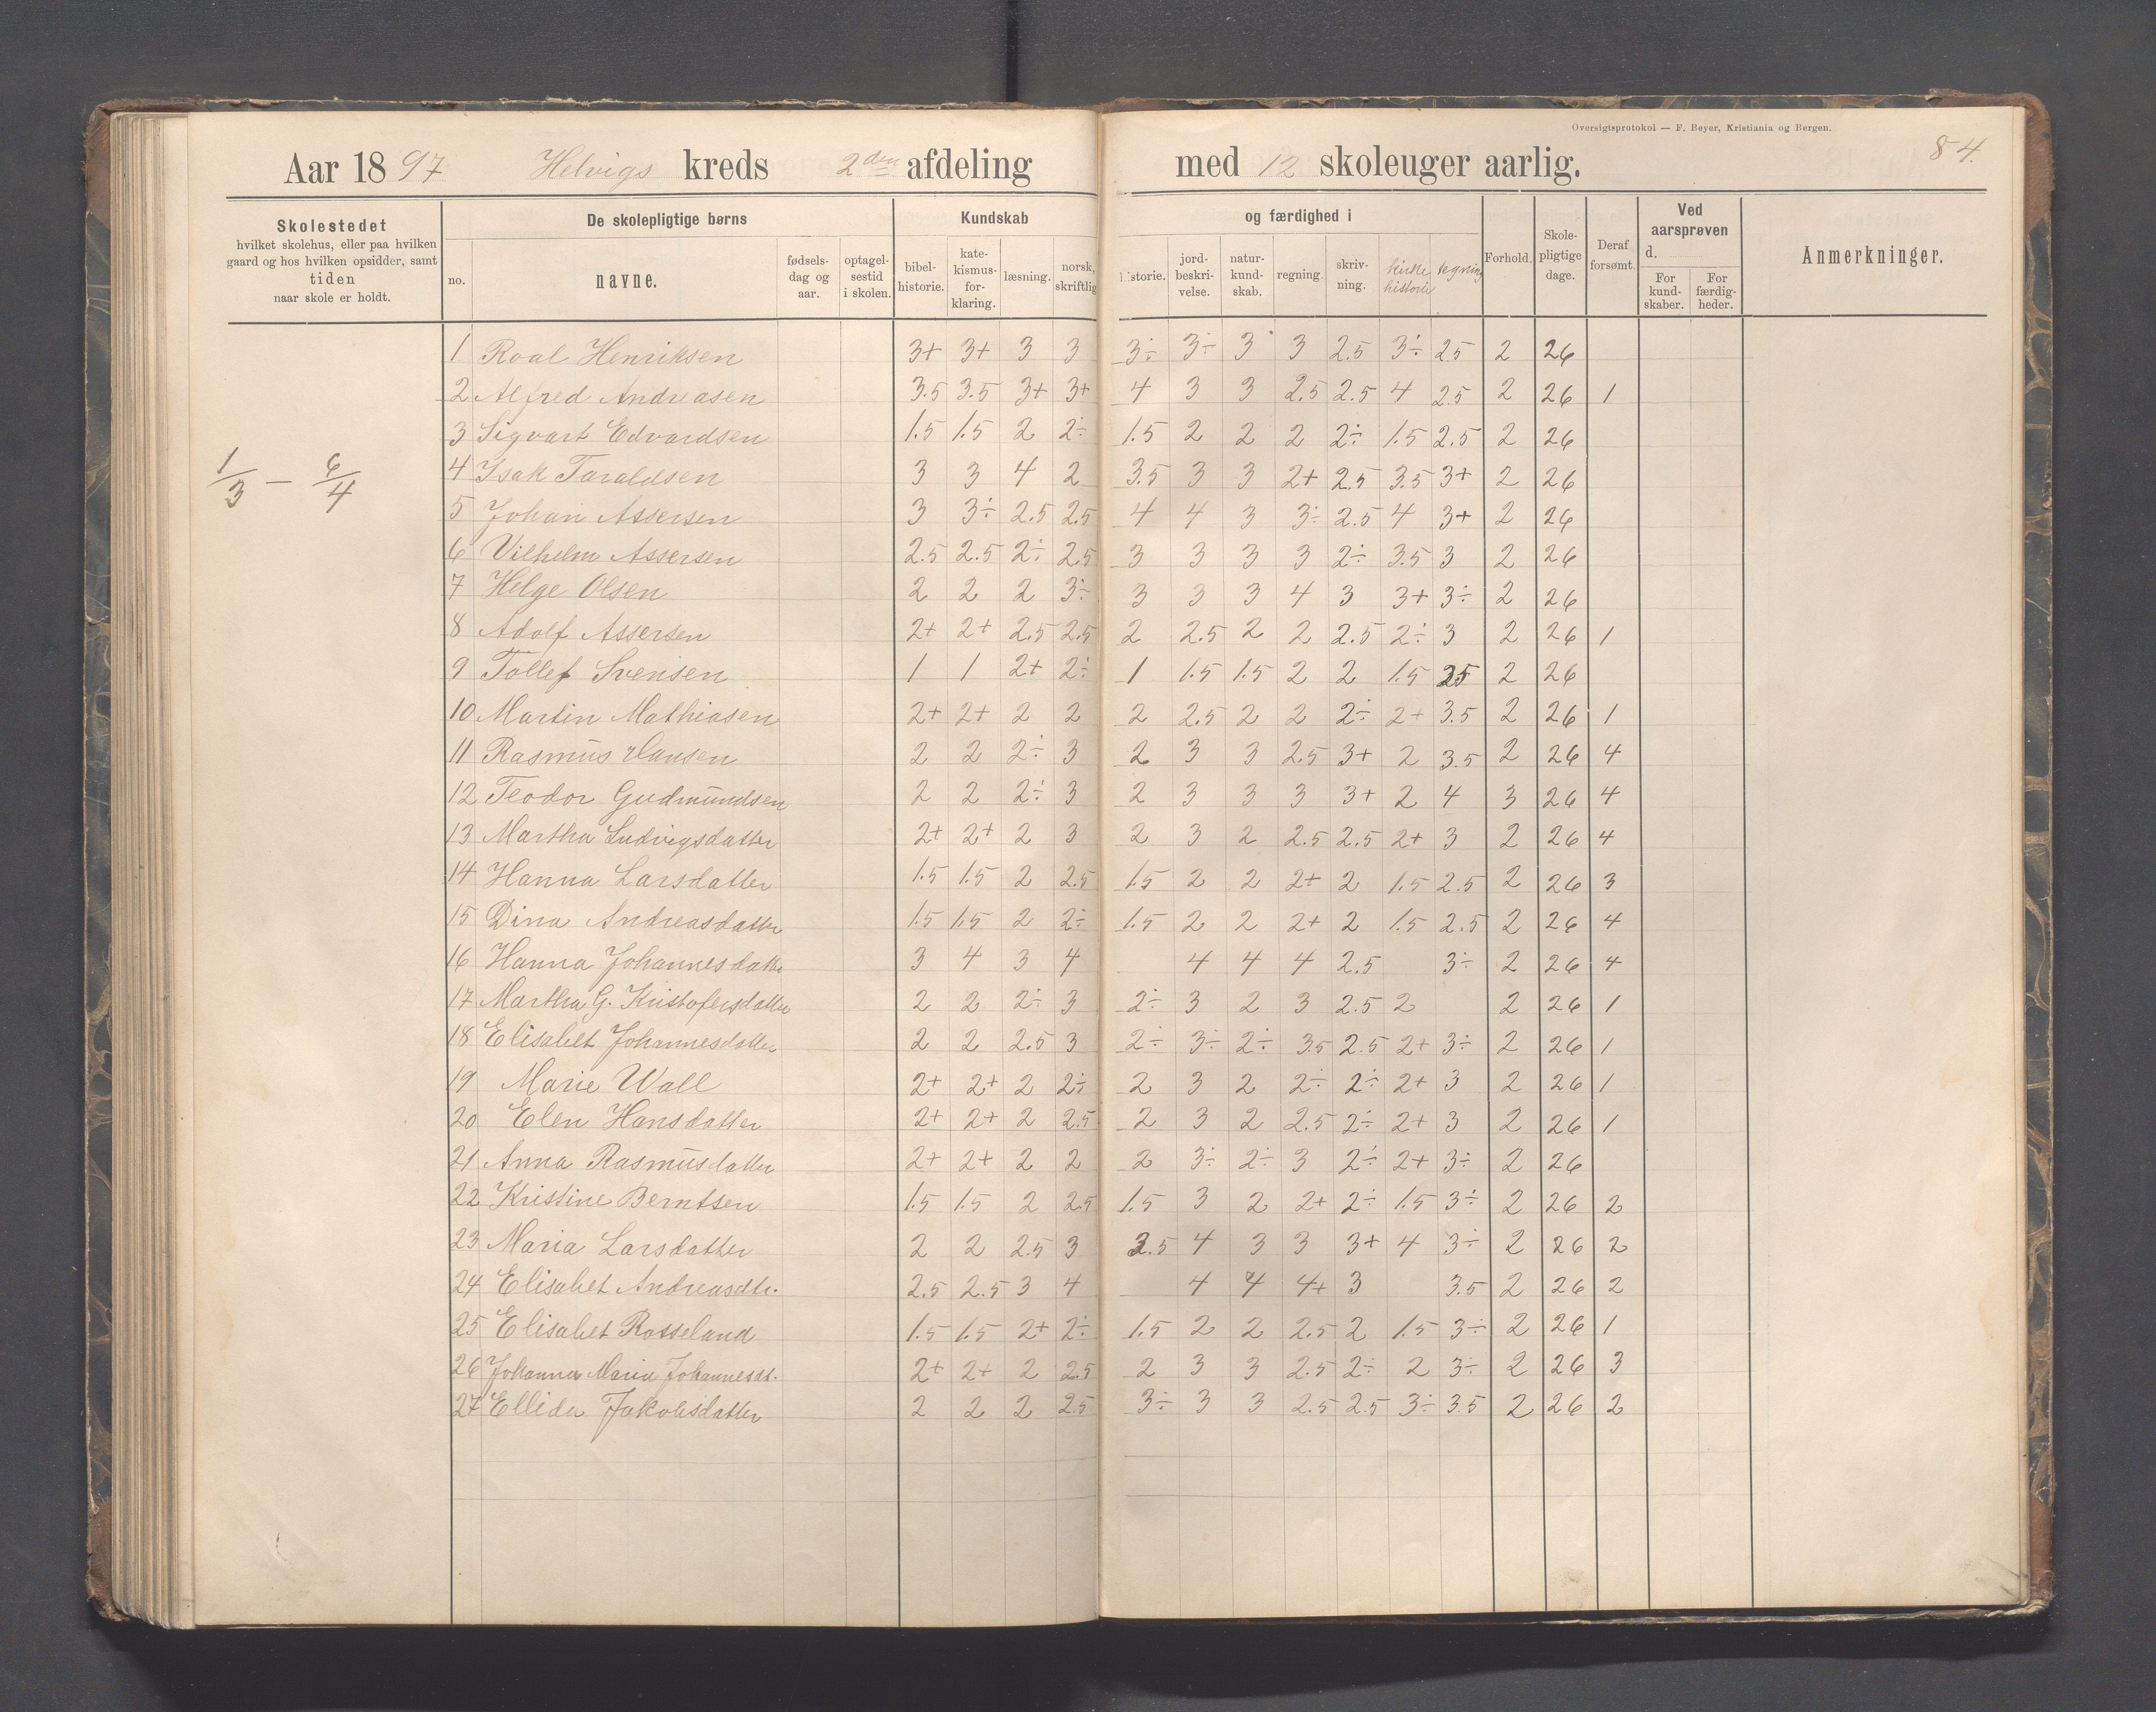 Oversigtsprotokol — F. Beyer, Kristiania og Bergen.
84.
Aar 1897 Helvigs kreds 2den afdeling med 12 skoleuger aarlig.
Skolestedet hvilket skolehus, eller paa hvilken gaard og hos hvilken opsidder, samt tiden naar skole er holdt.
De skolepligtige børns
no. navne. fødsels-dag og aar. optagel-sestid i skolen.
Kundskab og færdighed i
bibel-historie. kate-kismus-for-klaring. læsning. norsk, skriftlig historie. jord-beskri-velse. natur-kund-skab. regning. skriv-ning. kirke historie tegning
Forhold. Skole-pligtige dage. Deraf forsømt.
Ved aarsprøven d.
For kund-skaber. For færdig-heder.
Anmerkninger.
1/3 — 6/4
1 Roal Henriksen 3+ 3+ 3 3 3÷ 3÷ 3 3 2.5 3÷ 25 2 26
2 Alfred Andreasen 3.5 3.5 3+ 3+ 4 3 3 2.5 2.5 4 2.5 2 26 1
3 Sigvart Edvardsen 1.5 1.5 2 2÷ 1.5 2 2 2 2÷ 1.5 2.5 2 26
4 Isak Taraldsen 3 3 4 2 3.5 3 3 2+ 2.5 3.5 3+ 2 26
5 Johan Assersen 3 3÷ 2.5 2.5 4 4 3 3÷ 2.5 4 3+ 2 26
6 Vilhelm Assersen 2.5 2.5 2÷ 2.5 3 3 3 3 2÷ 3.5 3 2 26
7 Helge Olsen 2 2 2 3÷ 3 3 3 4 3 3+ 3÷ 2 26
8 Adolf Assersen 2+ 2+ 2.5 2.5 2 2.5 2 2 2.5 2÷ 3 2 26 1
9 Tollef Svensen 1 1 2+ 2÷ 1 1.5 1.5 2 2 1.5 25 2 26
10 Martin Mathiasen 2+ 2+ 2 2 2 2.5 2 2 2÷ 2+ 3.5 2 26 1
11 Rasmus Hansen 2 2 2÷ 3 2 3 3 2.5 3+ 2 3.5 2 26 4
12 Teodor Gudmundsen 2 2 2÷ 3 2 3 3 3 3+ 2 4 3 26 4
13 Martha Ludvigsdatter 2+ 2+ 2 3 2 3 2 2.5 2.5 2+ 3 2 26 4
14 Hanna Larsdatter 1.5 1.5 2 2.5 1.5 2 2 2+ 2 1.5 2.5 2 26 3
15 Dina Andreasdatter 1.5 1.5 2 2÷ 1.5 2 2 2+ 2 1.5 2.5 2 26 4
16 Hanna Johannesdatter 3 4 3 4 4 4 4 2.5 3÷ 2 26 4
17 Martha G. Kristofersdatter 2 2 2÷ 3 2÷ 3 2 3 2.5 2 2 26 1
18 Elisabet Johannesdatter 2 2 2.5 3 2÷ 3÷ 2÷ 3.5 2.5 2+ 3÷ 2 26 1
19 Marie Wall 2+ 2+ 2 2÷ 2 3 2 2÷ 2÷ 2+ 3 2 26 1
20 Elen Hansdatter 2+ 2+ 2 2.5 2 3 2 2.5 2÷ 2+ 3 2 26 1
21 Anna Rasmusdatter 2+ 2+ 2 2 2 3÷ 2÷ 3 2÷ 2+ 3÷ 2 26
22 Kristine Berntsen 1.5 1.5 2 2.5 1.5 3 2 2+ 2÷ 1.5 3÷ 2 26 2
23 Maria Larsdatter 2 2 2.5 3 3.5 4 3 3 3+ 4 3÷ 2 26 2
24 Elisabet Andreasdtr. 2.5 2.5 3 4 4 4 4+ 3 3.5 2 26 2
25 Elisabet Rosseland 1.5 1.5 2+ 2÷ 1.5 2 2 2.5 2 1.5 3÷ 2 26 1
26 Johanna Maria Johannesdt. 2+ 2+ 2 2.5 2 3 3 2.5 2÷ 2 3÷ 2 26 3
27 Ellida Jakobsdatter 2 2 2 2.5 3÷ 3 3 2.5 2.5 3÷ 3.5 2 26 2